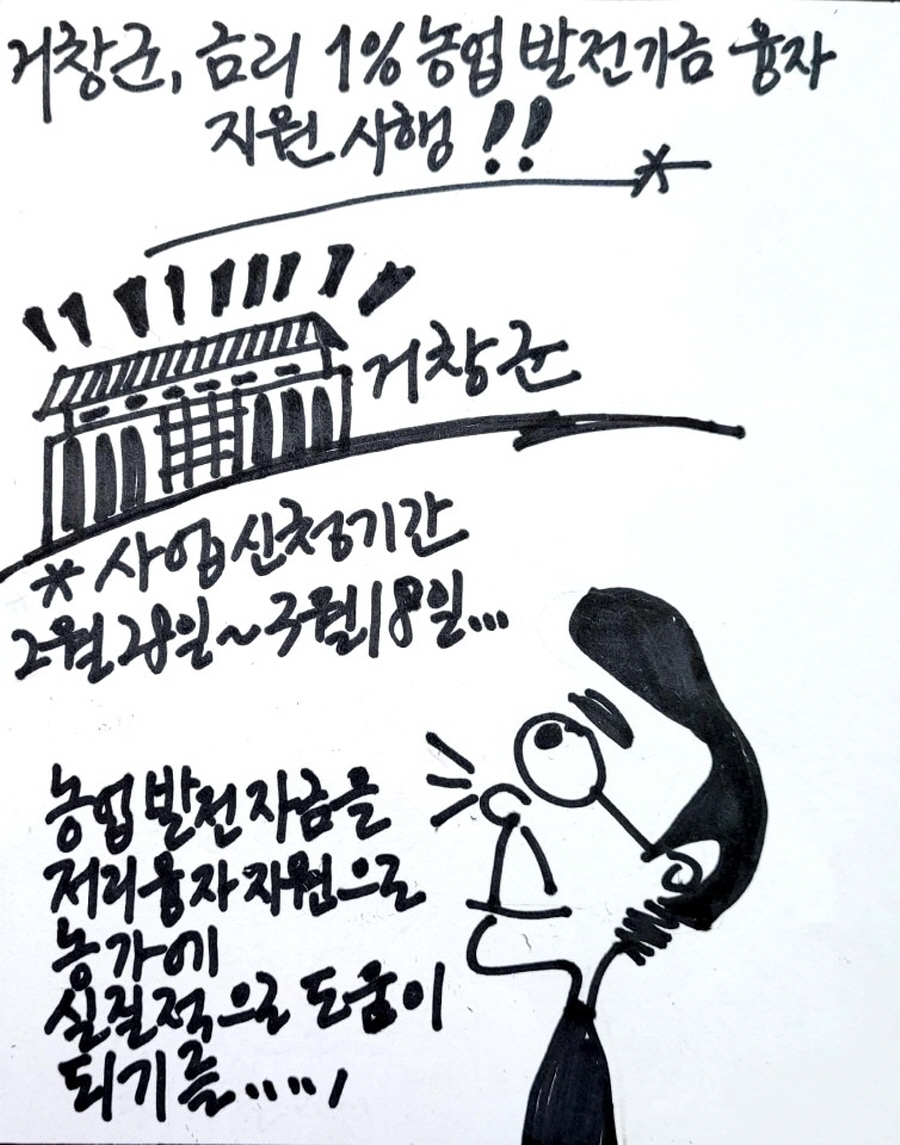 거창군, 금리 1% 농업 발전기금 융자
지원 시행!!
거창군
* 사업신청기간
2월 28일~3월 18일...
농업 발전 자금을
저리융자 지원으로
농가에
실질적으로 도움이
되기를.....,